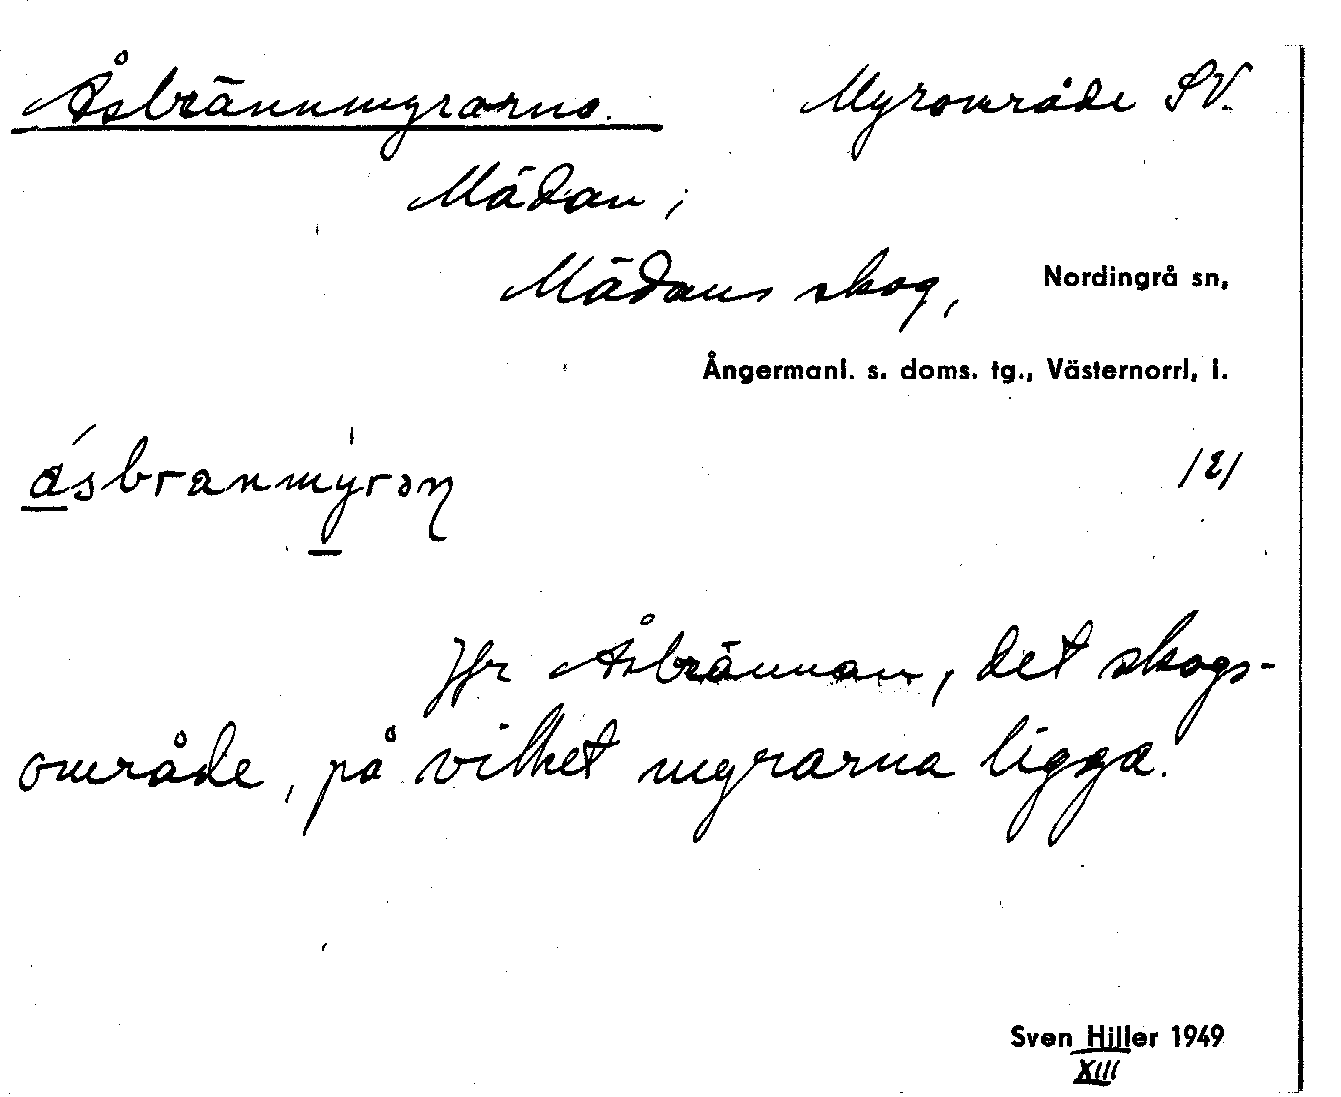 Åsbrännmyrarna. Myrområde SV.
Mädan;
Mädans skog, Nordingrå sn,
Ångermanl. s. doms. tg., Västernorrl, l.
ásbranmyrən /2/
Jfr Åsbrännan, det skogs-
område, på vilket myrarna ligga.
Sven Hiller 1949
XIII